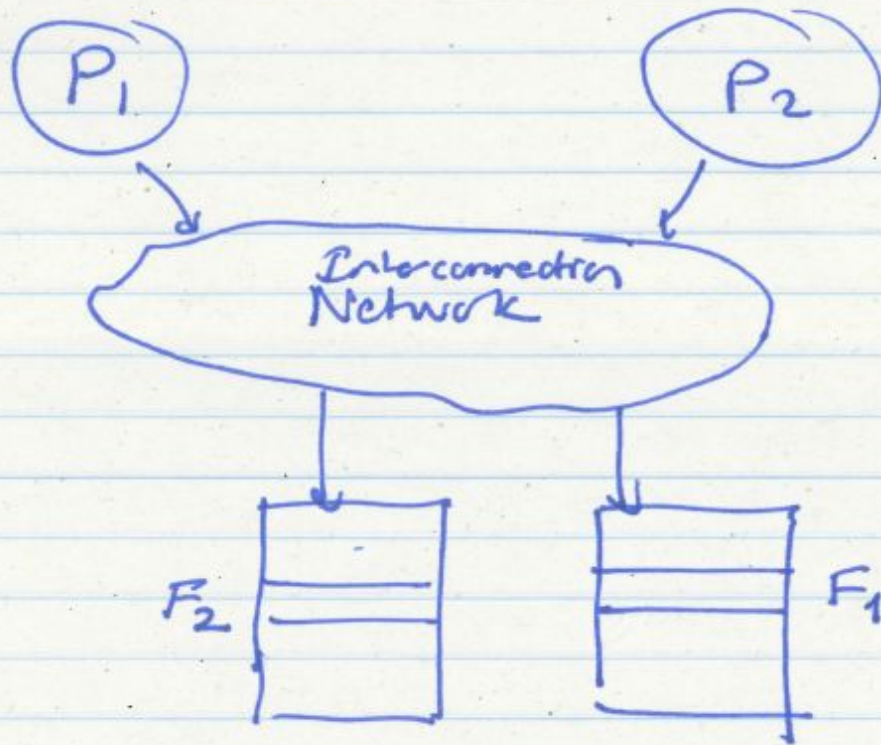 P1
P2
Interconnection
Network
F2
F1